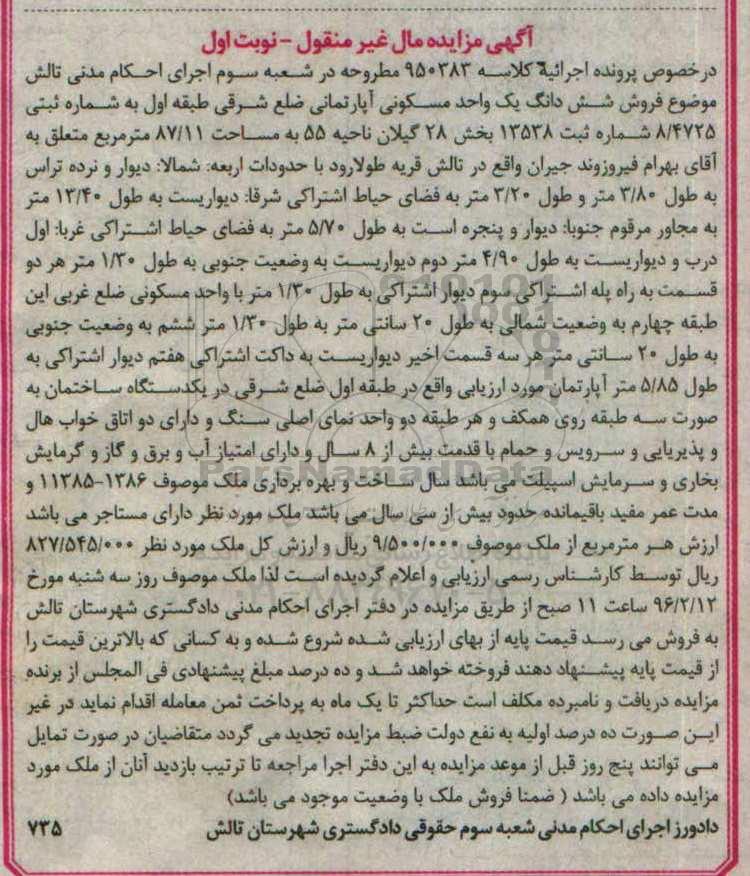 آگهی مزایده مال غیر منقول - نوبت اول
درخصوص پرونده اجرائیه کلاسه ۹۵۰۳۸۳ مطروحه در شعبه سوم اجرای احکام مدنی تالش
موضوع فروش شش دانگ یک واحد مسکونی آپارتمانی ضلع شرقی طبقه اول به شماره ثبتی
۸/۴۷۲۵ شماره ثبت ۱۳۵۳۸ بخش ۲۸ گیلان ناحیه ۵۵ به مساحت ۸۷/۱۱ مترمربع متعلق به
آقای بهرام فیروزوند جیران واقع در تالش قریه طولارود با حدودات اربعه: شمالا: دیوار و نرده تراس
به طول ۳/۸۰ متر و طول ۳/۲۰ متر به فضای حیاط اشتراکی شرقا: دیواریست به طول ۱۳/۴۰ متر
به مجاور مرقوم جنوبا: دیوار و پنجره است به طول ۵/۷۰ متر به فضای حیاط اشتراکی غربا: اول
درب و دیواریست به طول ۴/۹۰ متر دوم دیواریست به وضعیت جنوبی به طول ۱/۳۰ متر هر دو
قسمت به راه پله اشتراکی سوم دیوار اشتراکی به طول ۱/۳۰ متر با واحد مسکونی ضلع غربی این
طبقه چهارم به وضعیت شمالی به طول ۲۰ سانتی متر به طول ۱/۳۰ متر ششم به وضعیت جنوبی
به طول ۲۰ سانتی متر هر سه قسمت اخیر دیواریست به داکت اشتراکی هفتم دیوار اشتراکی به
طول ۵/۸۵ متر آپارتمان مورد ارزیابی واقع در طبقه اول ضلع شرقی در یکدستگاه ساختمان به
صورت سه طبقه روی همکف و هر طبقه دو واحد نمای اصلی سنگ و دارای دو اتاق خواب هال
و پذیریایی و سرویس و حمام با قدمت بیش از ۸ سال و دارای امتیاز آب و برق و گاز و گرمایش
بخاری و سرمایش اسپیلت می باشد سال ساخت و بهره برداری ملک موصوف ۱۳۸۶-۱۱۳۸۵ و
مدت عمر مفید باقیمانده حدود بیش از سی سال می باشد ملک مورد نظر دارای مستاجر می باشد
ارزش هر مترمربع از ملک موصوف ۹/۵۰۰/۰۰۰ ریال و ارزش کل ملک مورد نظر ۸۲۷/۵۴۵/۰۰۰
ریال توسط کارشناس رسمی ارزیابی و اعلام گردیده است لذا ملک موصوف روز سه شنبه مورخ
۹۶/۲/۱۲ ساعت ۱۱ صبح از طریق مزایده در دفتر اجرای احکام مدنی دادگستری شهرستان تالش
به فروش می رسد قیمت پایه از بهای ارزیابی شده شروع شده و به کسانی که بالاترین قیمت را
از قیمت پایه پیشنهاد دهند فروخته خواهد شد و ده درصد مبلغ پیشنهادی فی المجلس از برنده
مزایده دریافت و نامبرده مکلف است حداکثر تا یک ماه به پرداخت ثمن معامله اقدام نماید در غیر
این صورت ده درصد اولیه به نفع دولت ضبط مزایده تجدید می گردد متقاضیان در صورت تمایل
می توانند پنج روز قبل از موعد مزایده به این دفتر اجرا مراجعه تا ترتیب بازدید آنان از ملک مورد
مزایده داده می باشد ( ضمنا فروش ملک با وضعیت موجود می باشد)
دادورز اجرای احکام مدنی شعبه سوم حقوقی دادگستری شهرستان تالش ۷۳۵
ParsNamadData